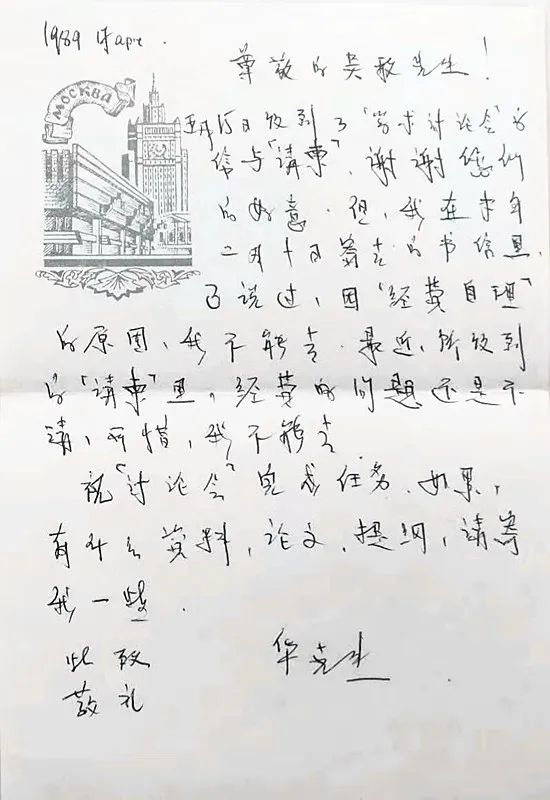 1989
尊敬的吴敢先生！
МОСКВА
收到了「学术讨论会」的
信与「請柬」，谢谢您们
的好意．但，我在本年
二月十日寄去的书信里，
已说过，因「经费自理」
的原因，我不能去．最近，所收到
的「請柬」里，经费的问题还是不
清，可惜，我不能去
祝「讨论会」完成任务．如果，
有什么资料，论文，提纲，请寄
我一些．
此致
敬礼